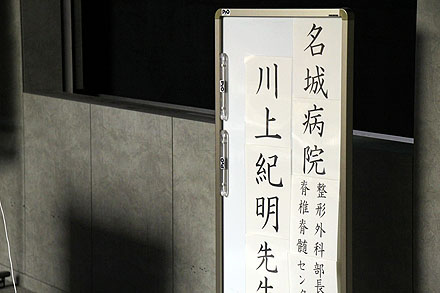 名城病院
整形外科部長
脊椎脊髄センタ
川上紀明先生